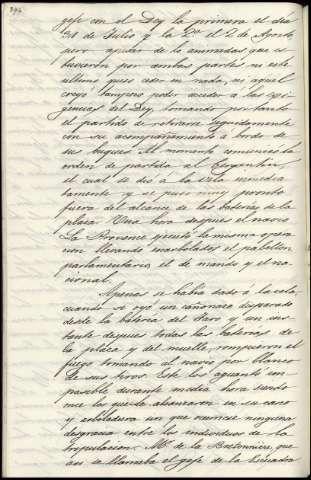 gefe con el Dey la primera el dia
31 de Julio y la 2ª el 2 de Agosto,
pero apesar de lo animadas que es-
tuvieron por ambas partes ni este
ultimo quiso ceder en nada, ni aquel
creyó tampoco poder acceder a las exi-
gencias del Dey, tomando por tanto
el partido de retirarse seguidamente
con su acompañamiento a bordo de
sus buques. Al momento comunicó la
orden de partida al Bergantin,
el cual se dió á la vela inmedia-
tamente y se puso muy pronto
fuera del alcance de las baterias de la
plaza. Una hora despues el navio
La Provence ejecutó la misma opera-
cion llevando enarbolados el pabellon
parlamentario, el de mando y el na-
cional.
Apenas se habia dado á la vela,
cuando se oyó un cañonazo disparado
desde la bateria del Faro y un ins-
tante despues todas las baterias de
la plaza y del muelle, rompieron el
fuego tomando al navio por blanco
de sus tiros. Este los aguantó im-
pasible durante media hora siendo
once los que le alcanzaron en su casco
y arboladura sin que ocurriese ninguna
desgracia entre los individuos de la
tripulacion. Mr. de la Bretonniere, que
asi se llamaba el gefe de la Escuadra